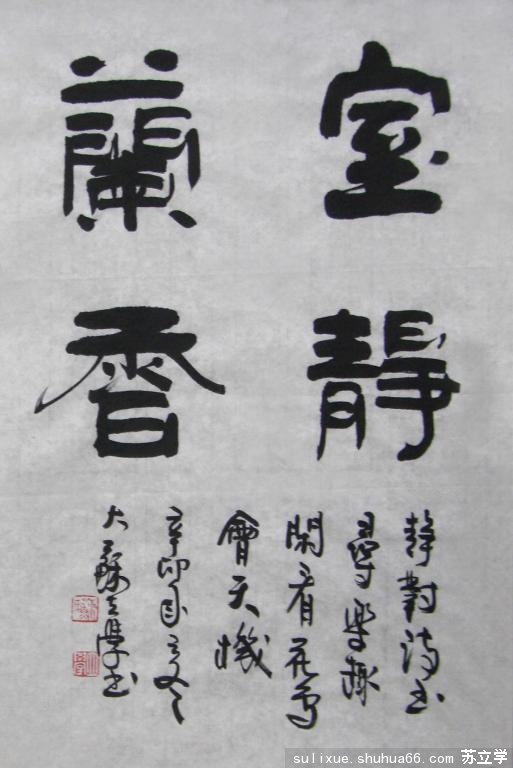 室靜
蘭香
靜對詩书
尋樂趣
閑看花鳥
會天機
辛卯之冬
大蘇立學书
sulixue.shuhua66.com 苏立学